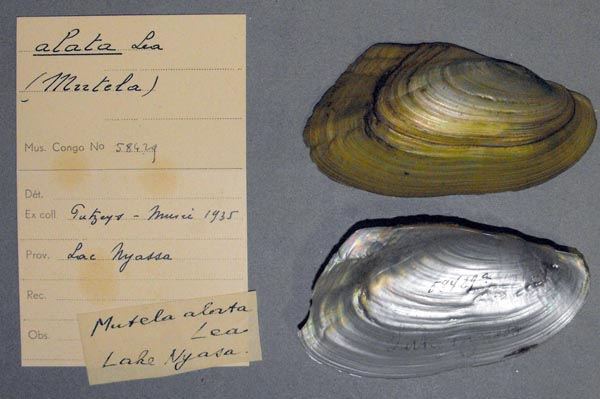 alata Lea
(Mutela)
Mus. Congo No 58429
Dét.
Ex coll. Putzeys - Musée 1935
Prov. Lac Nyassa
Rec.
Obs.
Mutela alata
Lea
Lake Nyasa.